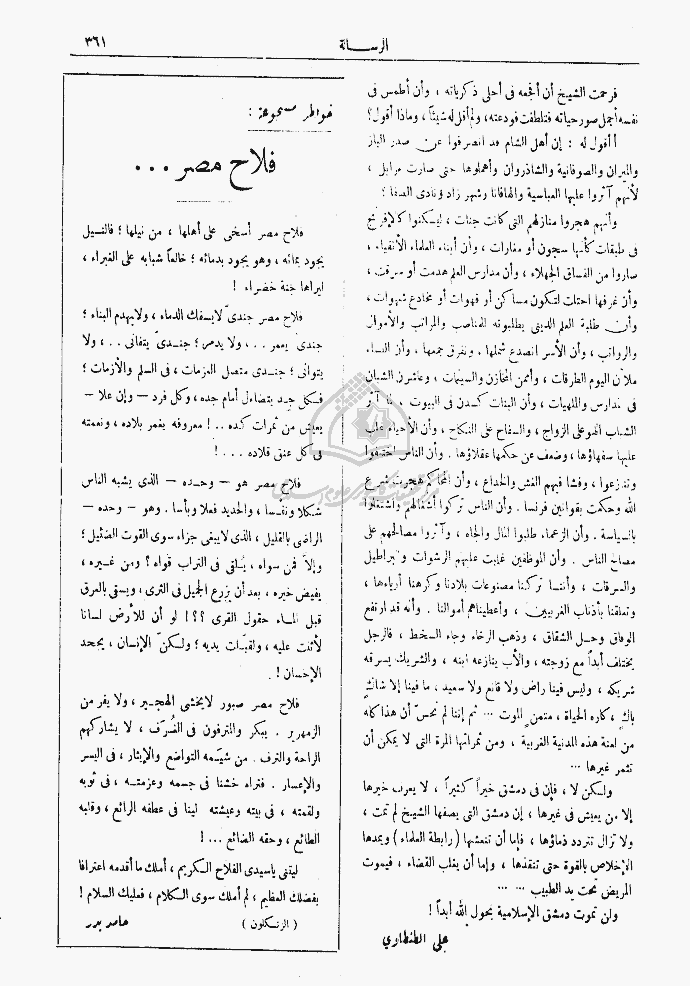 ٣٦١
الرسالة
فرحمت الشيخ أن أفجعه فى أحلى ذكرياته ، وأن أطمس فى
نفسه أجمل صور حياته فتلطفت فودعته، ولم أقل له شيئاً، وماذا أقول؟
أأقول له : إن أهل الشام قد انصرفوا عن صدر الباز
والميزان والصوفانية والشاذروان وأهملوها حتى صارت مزابل ،
لأنهم آثروا عليها العباسية والهافانا وشهر زاد ونادى الصفا ؟
وأنهم هجروا منازلهم التى كانت جنات ، ليسكنوا كالإفرنج
فى طبقات كأنها سجون أو مغارات ، وأن أبناء العلماء الأتقياء ،
صاروا من الفساق الجهلاء ، وأن مدارس العلم هدمت أو سرقت ،
وأن غرفها احتلت لتكون مساكن أو قهوات أو مخادع شهوات ،
وأن طلبة العلم الدينى يطلبونه للمناصب والمراتب والأموال
والرواتب ، وأن الأسر انصدع شملها . وتفرق جمعها ، وأن النساء
ملأن اليوم الطرقات ، وأممن المخازن والسينمات ، وعاشرن الشبان
فى المدارس والملهيات ، وأن البنات كسدن فى البيوت . لما آثر
الشباب الهوى على الزواج ، والسفاح على النكاح ، وأن الأحياء غلب
عليها سفهاؤها ، وضعف عن حكمها عقلاؤها . وأن الناس اختلفوا
وتنازعوا ، وفشا فيهم الغش والخداع ، وأن المحاكم هجرت شرع
الله وحكمت بقوانين فرنسا . وأن الناس تركوا أشغالهم واشتغلوا
بالسياسة . وأن الزعماء طلبوا المال والجاه ، وآثروا مصالحهم على
مصالح الناس . وأن الموظفين غلبت عليهم الرشوات والبراطيل
والسرقات ، وأننا تركنا مصنوعات بلادنا وكرهنا أزياءها ،
وتعلقنا بأذناب الغربيين ، وأعطيناهم أموالنا . وأنه قد ارتفع
الوفاق وحل الشقاق ، وذهب الرخاء وجاء السخط ، فالرجل
يختلف أبداً مع زوجته ، والأب ينازعه ابنه ، والشريك يسرقه
شريكه ، وليس فينا راض ولا قانع ولا سعيد ، ما فينا إلا شاكٍ
باكٍ ، كاره الحياة ، متمن الموت ... ثم إننا لم نحسّ أن هذا كله
من لعنة هذه المدنية الغربية ، ومن ثمراتها المرة التى لا يمكن أن
تثمر غيرها ...
ولكن لا ، فإن فى دمشق خيراً كثيراً ، لا يعرف خيرها
إلا من يعيش فى غيرها ، إن دمشق التى يصفها الشيخ لم تمت ،
ولا تزال تتردد ذماؤها ، فإما أن تنعشها (رابطة العلماء) ويمدها
الإخلاص بالقوة حتى تنقذها ، وإما أن يغلب القضاء ، فيموت
المريض تحت يد الطبيب ... ...
ولن تموت دمشق الإسلامية بحول الله أبداً !
على الطنطاوي
خواطر مسجوعة :
فلاح مصر ...
فلاح مصر أسخى على أهلها ، من نيلها ؛ فالنيل
يجود بمائه ، وهو يجود بدمائه ؛ خالعاً شبابه على الغبراء ،
ليراها جنة خضراء !
فلاح مصر جندىّ لا يسفك الدماء ، ولا يهدم البناء ؛
جندىّ يعمر . . ، ولا يدمر ؛ جندىّ يتفانى . . ، ولا
يتوانى ؛ جندى متصل العزمات ، فى السلم والأزمات ؛
فكل جهد يتضاءل أمام جهده ، وكل فرد – وإن علا –
يعيش من ثمرات كده . . ! معروفه يغمر بلاده ، ونعمته
فى كل عنق قلاده . . . !
فلاح مصر هو – وحده – الذى يشبه الناس
شكلا ونفسا ، والحديد فعلا وبأسا . وهو – وحده –
الراضى بالقليل ، الذى لا يبغى جزاء سوى القوت الضئيل ؛
وإلا فمن سواه ، يُلقى فى التراب قواه ؟ ومن غيره ،
يفيض خيره ، بعد أن يزرع الجميل فى الثرى ، ويسقى بالعرق
قبل الماء حقول القرى ؟؟! لو أن للأرض لسانا
لأثنت عليه ، ولقبلت يديه ؛ ولكنّ الإنسان ، يجحد
الإحسان ! .
فلاح مصر صبور لا يخشى الهجير ، ولا يفر من
الزمهرير . يبكر والمترفون فى الغُرَف ، لا يشاركهم
الراحة والترف . من شيَمه التواضع والإيثار ، فى اليسر
والإعسار . فتراه خشنا فى جسمه وعزمته ، فى ثوبه
ولقمته ، فى بيته وعيشته لينا فى عطفه الرائع ، وقلبه
الطائع ، وحقه الضائع ... !
ليتنى يا سيدى الفلاح الكريم ، أملك ما أقدمه اعترافا
بفضلك العظيم ، لم أملك سوى الكلام ، فعليك السلام !
( الزنكلون ) حامد بدر